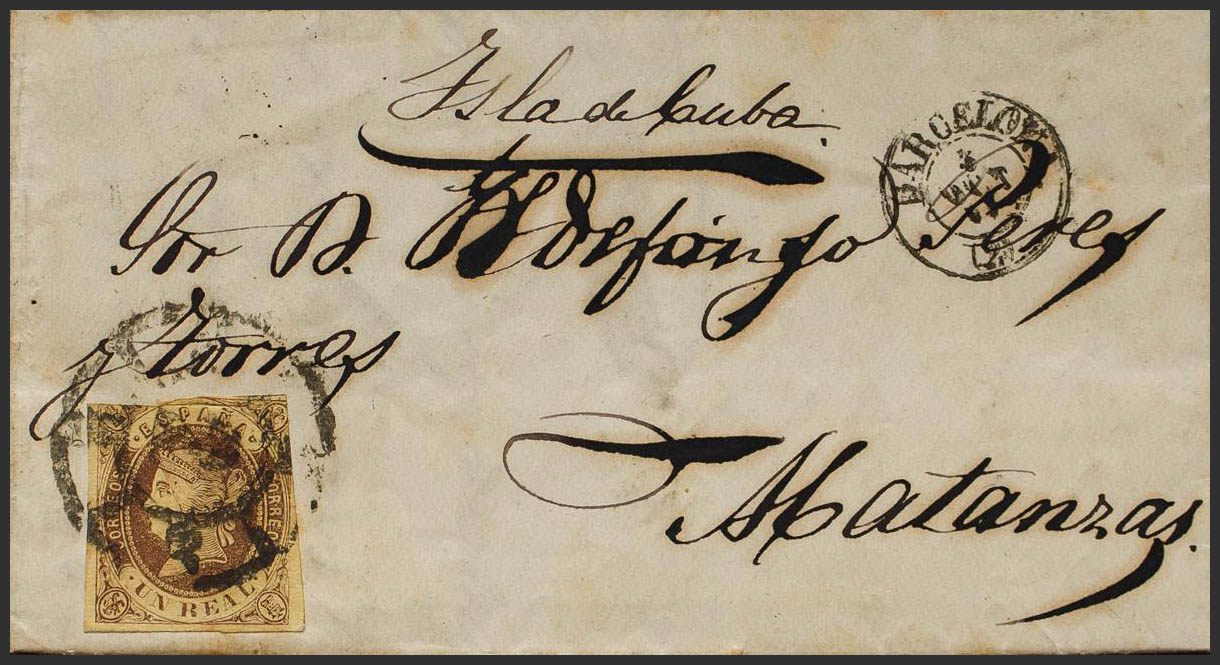 Isla de Cuba.
BARCELONA
Sor D. Yldefonzo Peres
y Torres
Matanzas.
ESPAÑA
CORREOS CORREOS
UN REAL